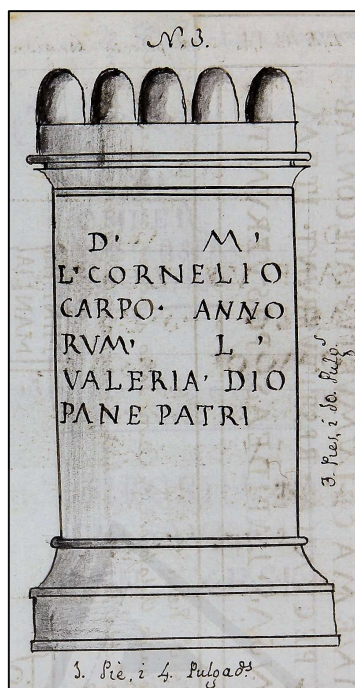 N. 3.
D' M'
L' CORNELIO
CARPO · ANNO
RVM' L '
VALERIA' DIO
PANE PATRI
3. Pies, i 10. Pulgs
1. Pie, i 4. Pulgads